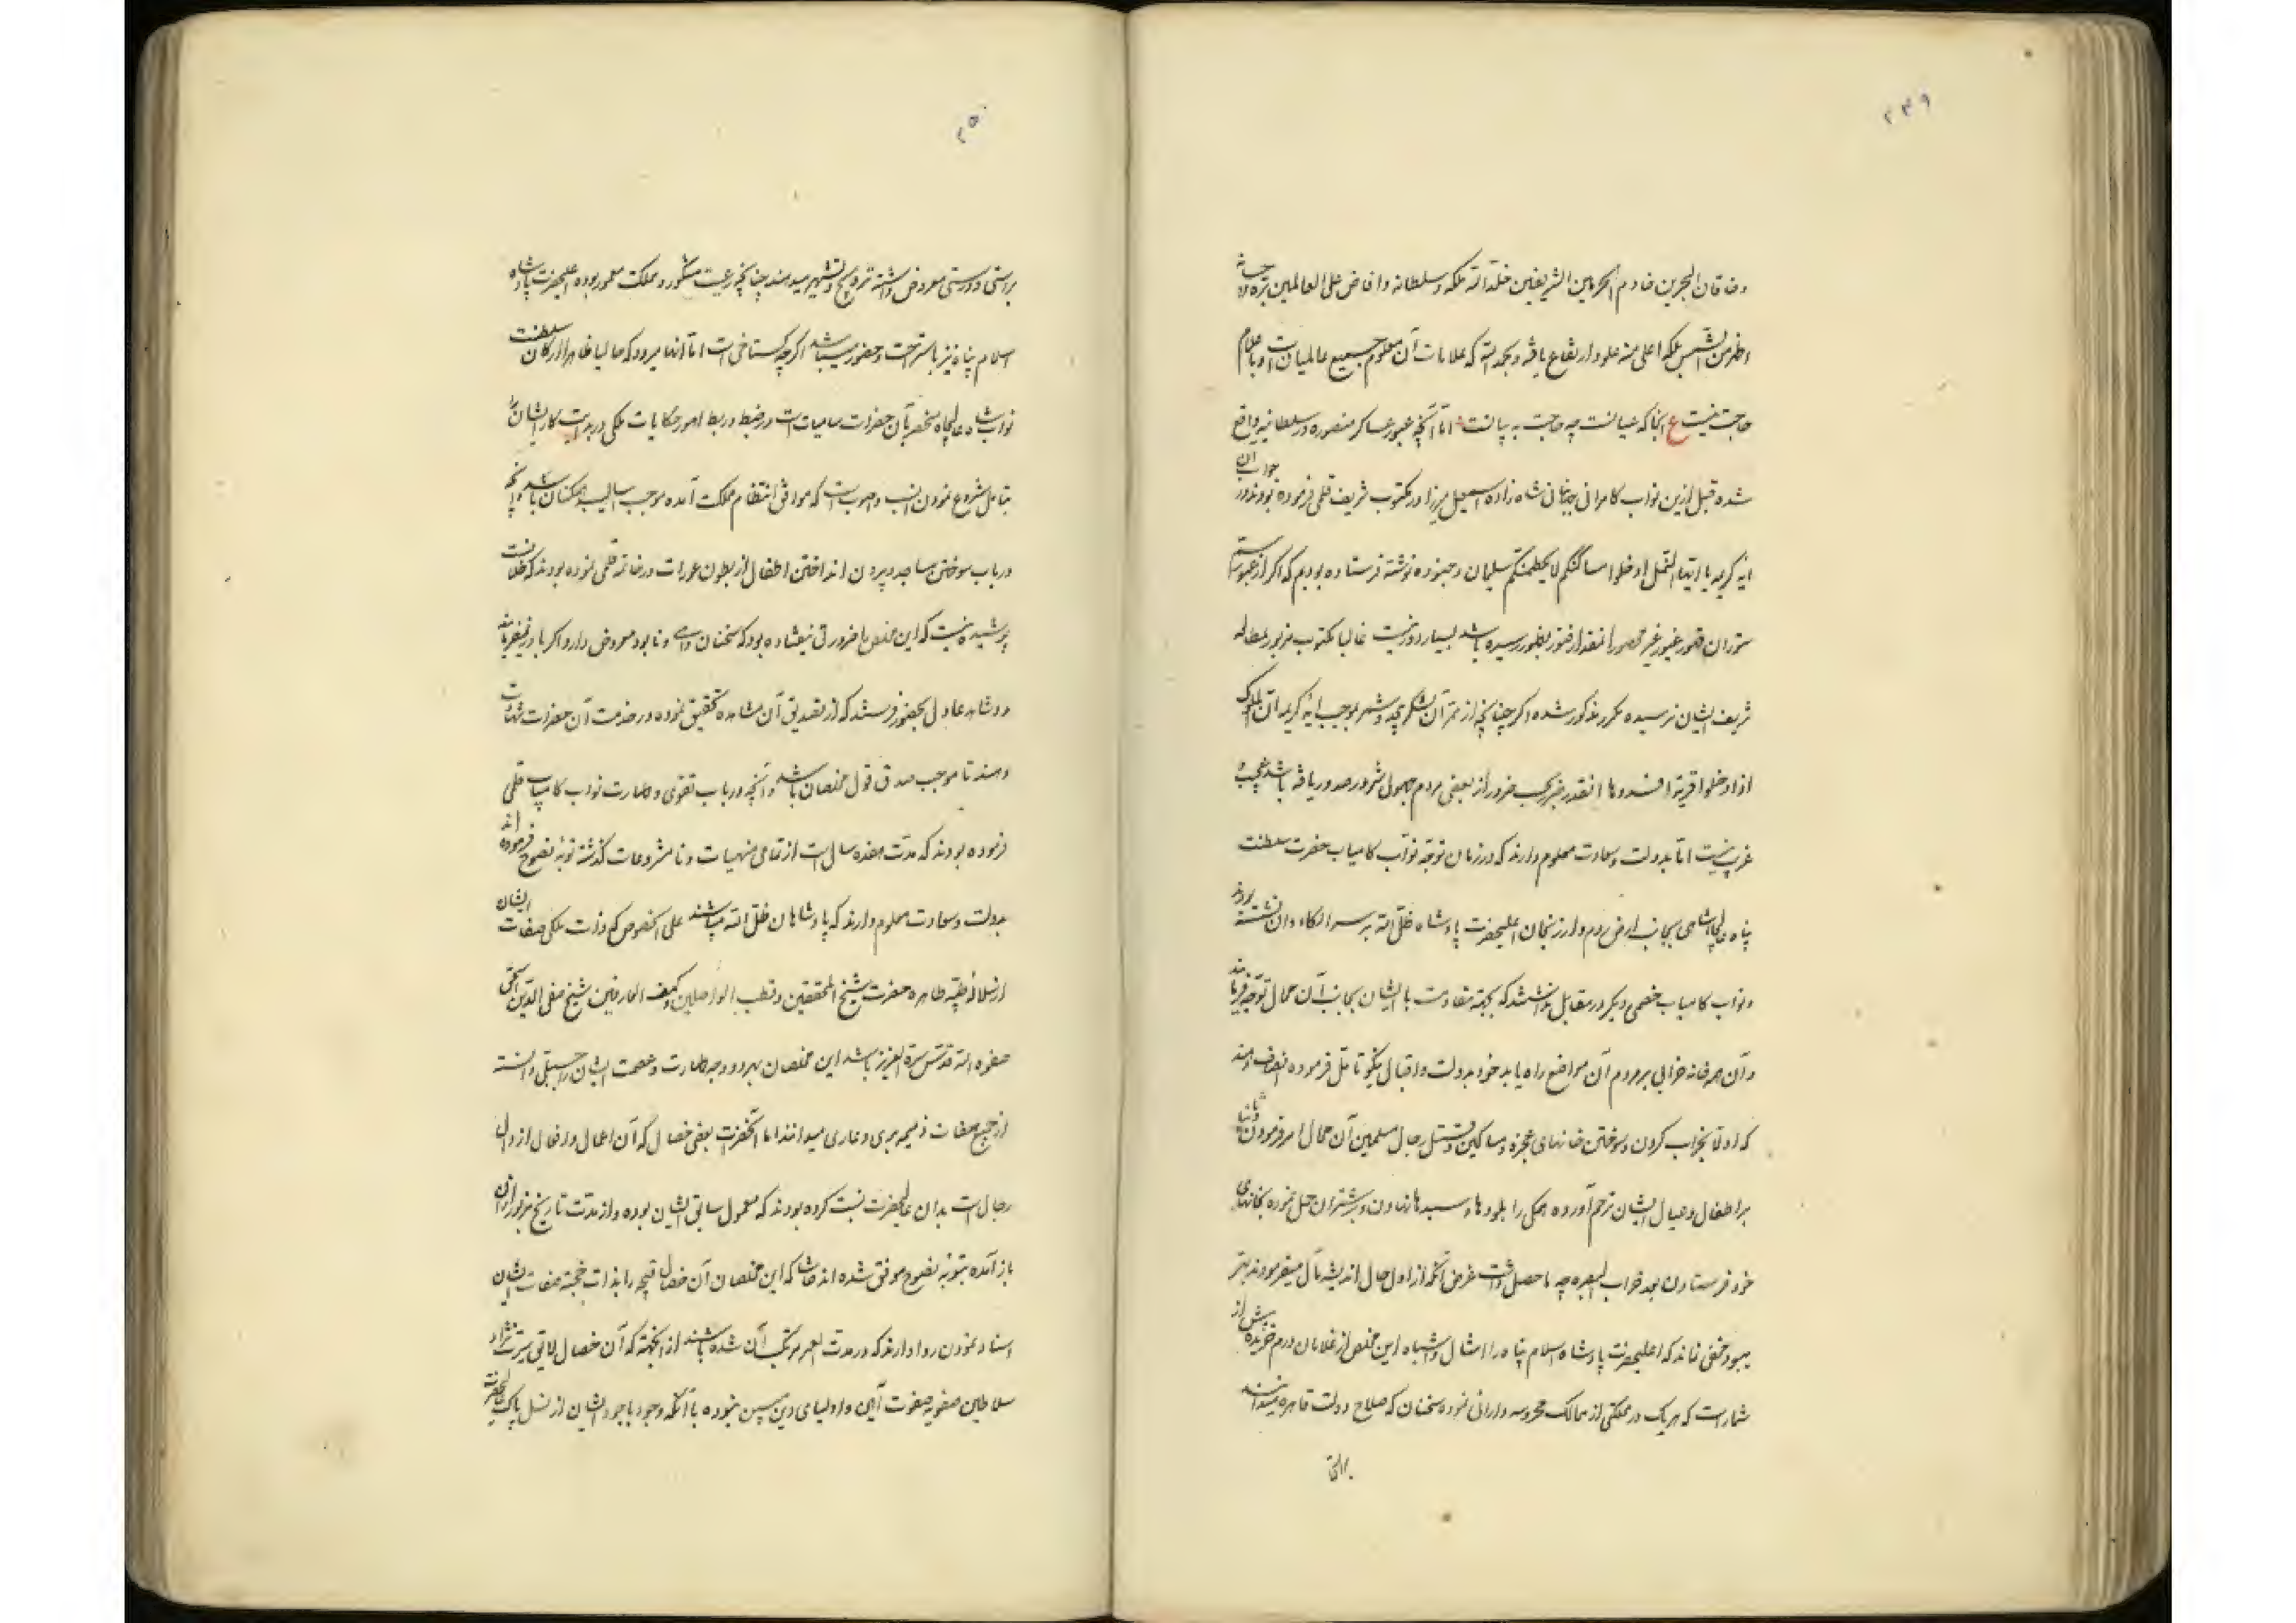 ۲۴۹
و خاقان البحرین خادم الحرمین الشریفین خلد الله ملکه و سلطانه و افاض علی العالمین بره و احسانه
اظهر من الشمس بلکه اعلی منه علو و ارتفاع یافته و بحمد الله که علامات آن معلوم جمیع عالمیان است و باعلام
حاجت نیست ع آنجا که عیانست چه حاجت به بیانست اما آنچه عبور عساکر منصوره در سلطانیه واقع
شده قبل ازین نواب کامرانی جهانبانی شاه زاده اسمعیل میرزا در مکتوب شریف قلمی فرموده بودند در جواب آن
ایه کریمه یا ایها النمل ادخلوا مساکنکم لا یحطمنکم سلیمان و جنوده نوشته فرستاده بودیم که اگر از عبور سم
ستوران قهور غیور غیر محصور انقدر فتور بظهور رسیده باشد بسیار دور نیست غالبا مکتوب مزبور بمطالعه
شریف ایشان نرسیده مکرر مذکور شده اگر چنانچه از ممر آن لشکر بیحد و شمر بموجب ایه کریمه ان الملوک
اذا دخلوا قریة افسدوها انقدر ضرر از بعضی مردم مجهول شرور صدور یافته باشد عجیب و
غریب نیست اما بدولت و سعادت معلوم دارند که در زمان توجه نواب کامیاب حضرت سلطنت
پناه عالیجاه شاهی بجانب ارض روم و ارزنجان اعلیحضرت پادشاه ظل الله بر سر الکاء وان نشسته بودند
و نواب کامیاب خصمی دیگر در مقابل نداشتند که بجهة مقاومت با ایشان بجانب آن محال توجه فرمایند
و آن همه خانه خرابی بمردم آن مواضع راه یابد خود بدولت و اقبال نیکو تامل فرموده انصاف دهند
که اولا بخراب کردن و سوختن خانهای عجزه و مساکین و قتل رجال مسلمین آن محال امر فرمودن و ثانیا
بر اطفال و عیال ایشان ترحم آورده همگی را بلودها و سبدها نهادن و بر شتران حمل نموده بخانهای
خود فرستادن بعد خراب البصره چه ماحصل داشت غرض آنکه از اول حال اندیشه مآل میفرمودند بهتر
میبود مخفی نماند که اعلیحضرت پادشاه اسلام پناه را امثال و اشباه این مخلص از غلامان درم خریده بیش از
شمار است که هر یک در مملکتی از ممالک محروسه دارائی نموده سخنان که صلاح دولت قاهره میدانسند
براستی
۲۵۰
براستی و درستی معروض داشته ترویج و تشهیر میدهند چنانچه رعیت مشکور و مملکت معمور بوده اعلیحضرت پادشاه
اسلام پناه نیز باستراحت و حضور میباشد اگرچه گستاخی است اما انها میرود که حالیا ظاهرا ارکان سلطنت
نواب شاه عالیجاه منحصر بآن حضرات سامیات است در ضبط و ربط امور حکایات ملکی در بدایت کار ایشانرا
بتامل شروع نمودن انسب و اصوبست که موافق انتظام مملکت آمده موجب اسالیب همگنان باشد و آنچه
در باب سوختن مساجد و بیرون انداختن اطفال از بطون عورات در خاتمه قلمی نموده بودند که خلافست
پوشیده نیست که این مخلص را ضرورتی نیفتاده بود که سخنان واهی و نابود معروض دارد اگر باور نمیفرمایند
دو شاهد عادل بحضور فرستند که از تصدیق آن مشاهده تحقیق نموده در خدمت آن حضرات شهادت
دهند تا موجب صدق قول مخلصان باشد و آنچه در باب تقوی و طهارت نواب کامیاب قلمی
فرموده بودند که مدت هفده سال است از تمامی منهیات و نامشروعات گذشته توبه نصوح فرموده اند
بدولت و سعادت معلوم دارند که پادشاهان ظل الله میباشند علی الخصوص که ذات ملکی صفات ایشان
از سلاله طیبه طاهره حضرت شیخ المحققین و قطب الواصلین و کهف العارفین شیخ صفی الدین اسحق
صفوه الله قدس سره العزیز باشد این مخلصان بهر دو وجه طهارت و عصمت ایشان را جبلی دانسته
از جمیع صفات ذمیمه بری و عاری میدانند اما آنحضرت بعضی خصال که آن اعمال و افعال ارذال
رجال است بدان عالیحضرت نسبت کرده بودند که معمول سابق ایشان بوده و از مدت تاریخ مزبور ازان
باز آمده بتوبه نصوح موفق شده اند حاشا که این مخلصان آن خصال قبیحه را بذات خجسته صفات ایشان
اسناد نمودن روا دارند که در مدت العمر مرتکب آن شده باشند از آنجهة که آن خصال لایق سیرت نژاد
سلاطین صفویه صفوت آئین و اولیای دین مبین نبوده با آنکه وجود باجود ایشان از نسل پاک آنحضرت